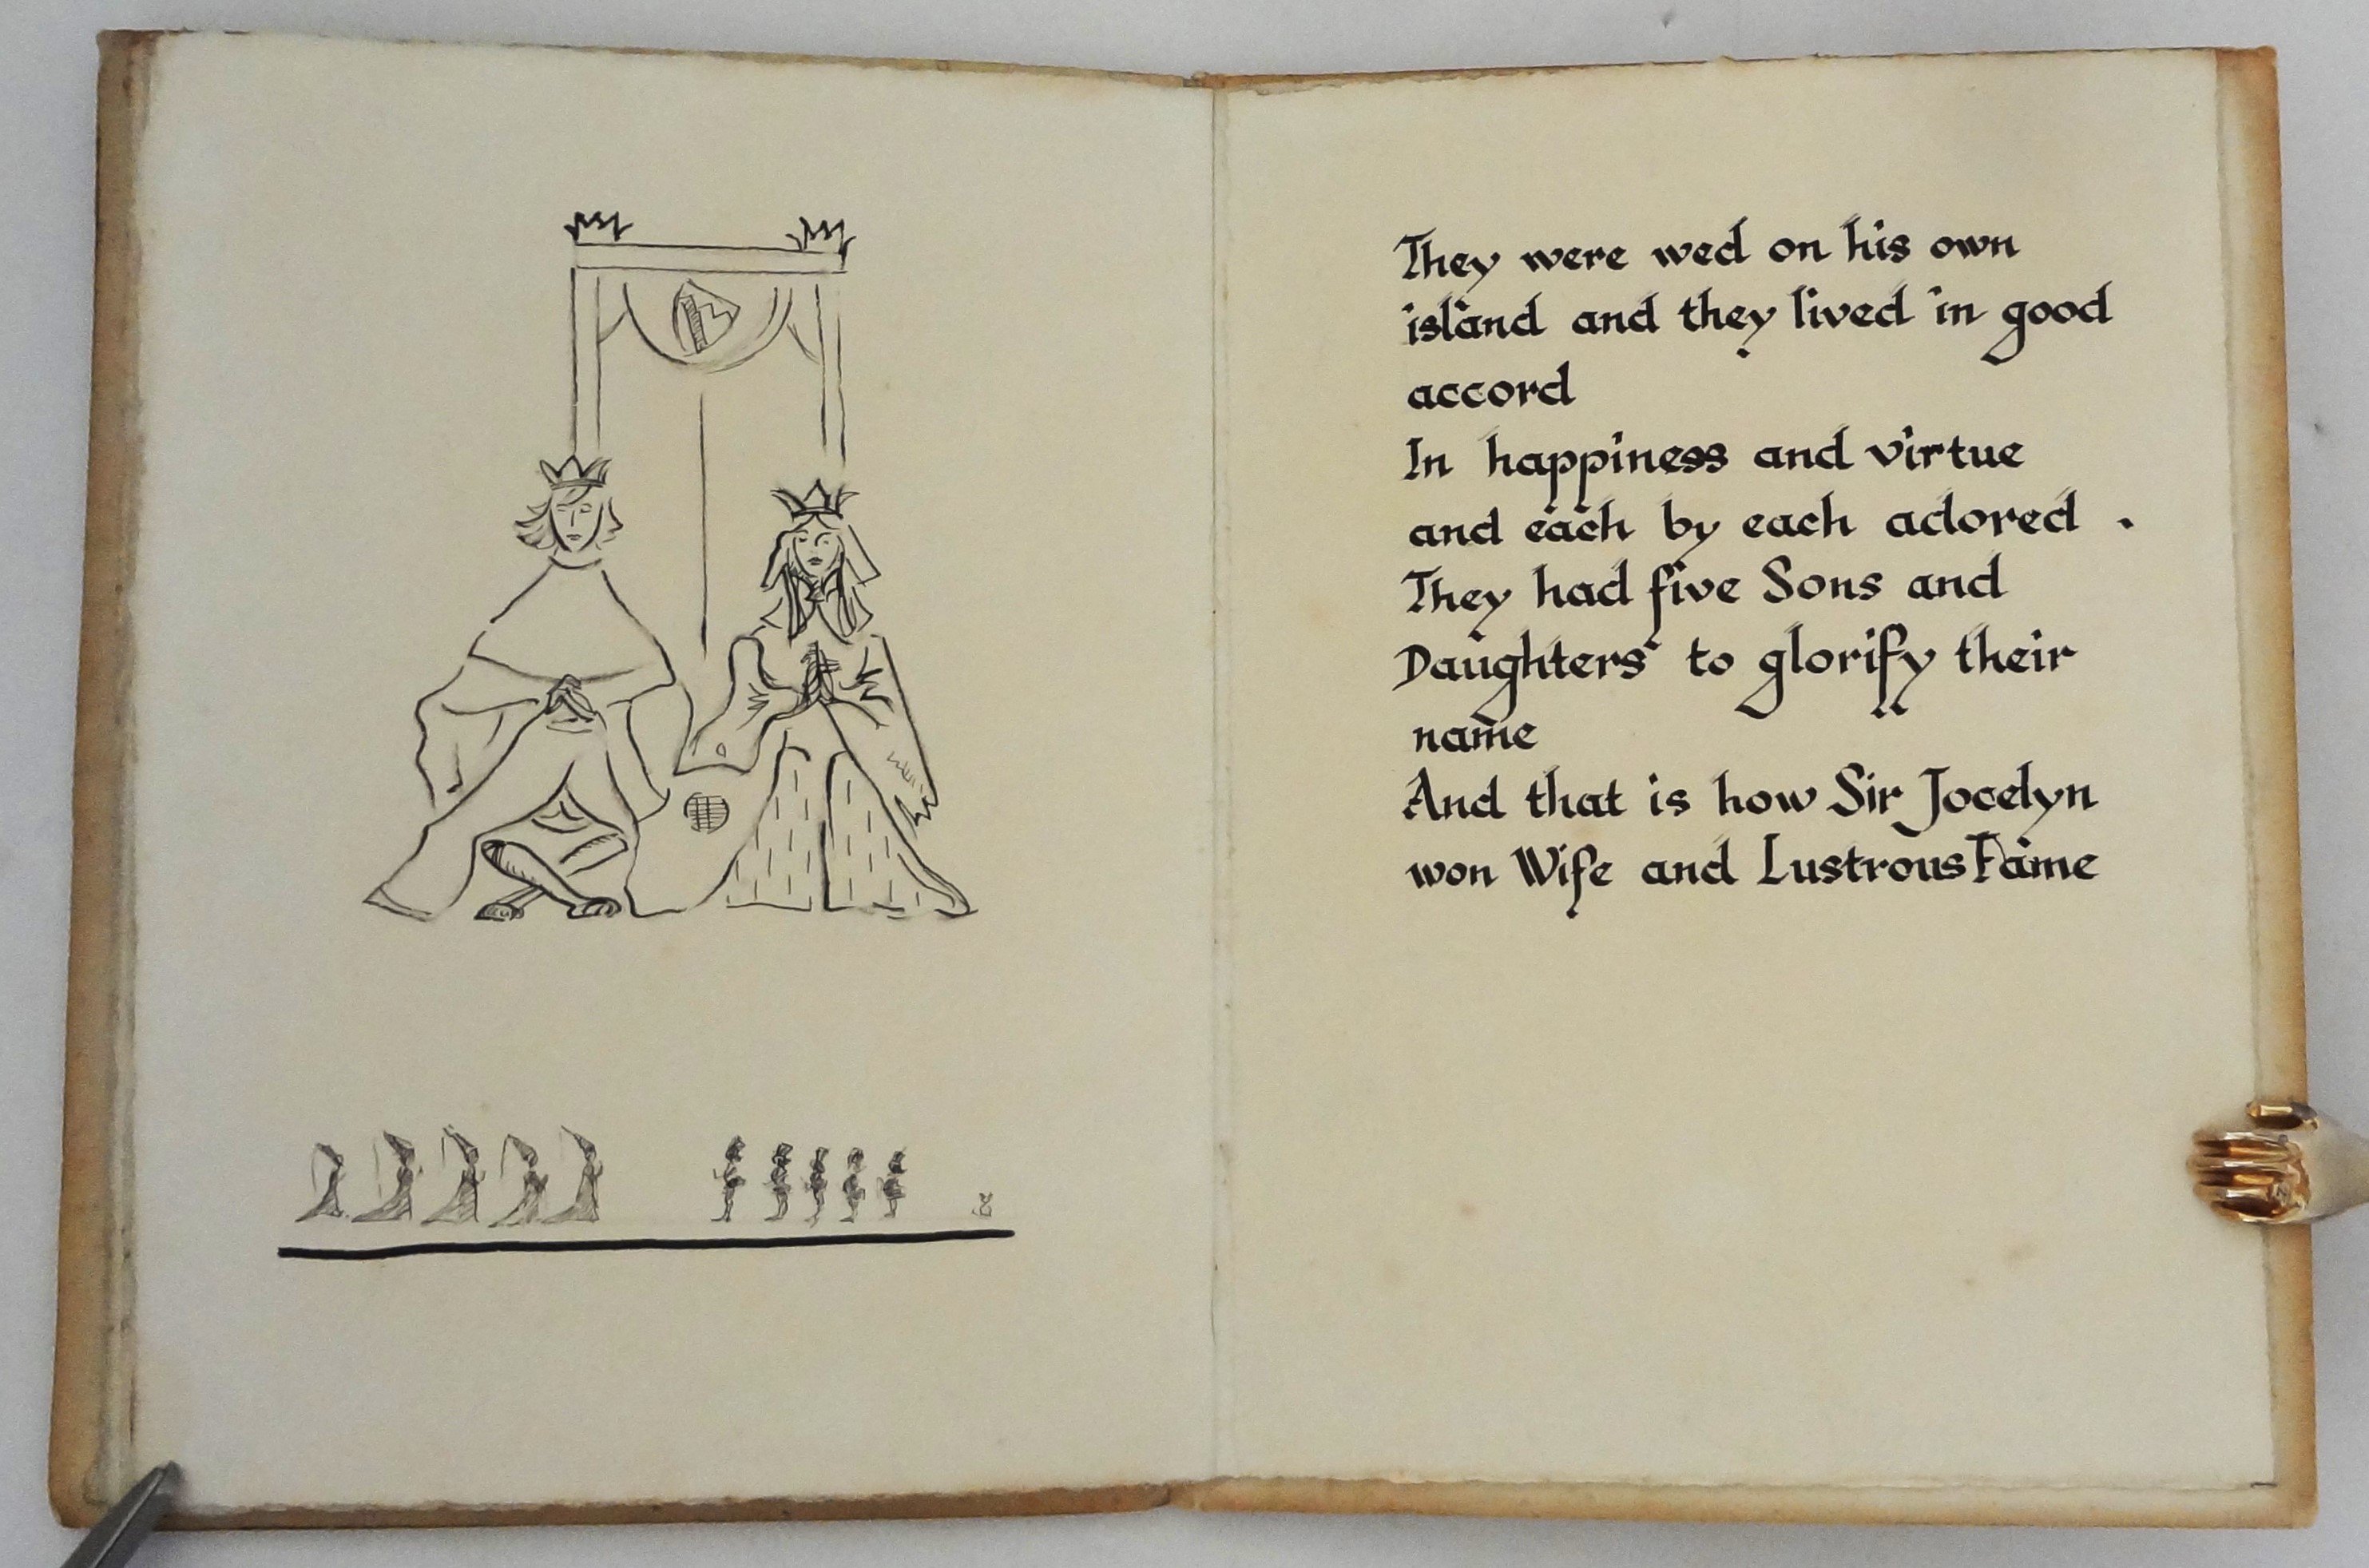 They were wed on his own
island and they lived in good
accord
In happiness and virtue
and each by each adored .
They had five Sons and
Daughters to glorify their
name
And that is how Sir Jocelyn
won Wife and Lustrous Fame